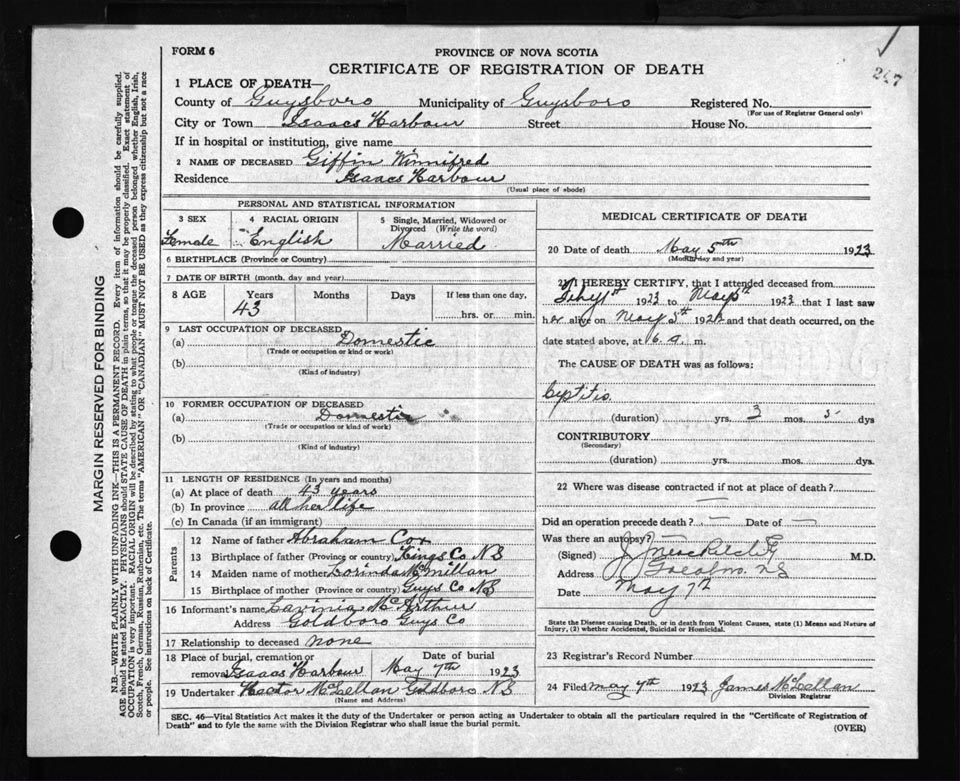 247
FORM 6
PROVINCE OF NOVA SCOTIA
CERTIFICATE OF REGISTRATION OF DEATH
1 PLACE OF DEATH—
County of Guysboro Municipality of Guysboro Registered No.
(For use of Registrar General only)
City or Town Isaacs Harbour Street House No.
If in hospital or institution, give name
2 NAME OF DECEASED Giffin Winnifred
Residence Isaacs Harbour
(Usual place of abode)
PERSONAL AND STATISTICAL INFORMATION
3 SEX 4 RACIAL ORIGIN 5 Single, Married, Widowed or Divorced (Write the word)
Female English Married
6 BIRTHPLACE (Province or Country)
7 DATE OF BIRTH (month, day and year)
8 AGE Years Months Days If less than one day,
43 hrs. or min.
9 LAST OCCUPATION OF DECEASED
(a) Domestic
(Trade or occupation or kind or work)
(b)
(Kind of industry)
10 FORMER OCCUPATION OF DECEASED
(a) Domestic
(Trade or occupation or kind of work)
(b)
(Kind of industry)
11 LENGTH OF RESIDENCE (In years and months)
(a) At place of death 43 years
(b) In province all her life
(c) In Canada (if an immigrant)
Parents
12 Name of father Abraham Cox
13 Birthplace of father (Province or country) Kings Co NS
14 Maiden name of mother Lorinda McMillan
15 Birthplace of mother (Province or country) Guys Co NS
16 Informant's name Lavinia McArthur
Address Goldboro Guys Co
17 Relationship to deceased None
18 Place of burial, cremation or removal Isaacs Harbour Date of burial May 7th 1923
19 Undertaker Hector McLellan Goldboro NS
(Name and Address)
MEDICAL CERTIFICATE OF DEATH
20 Date of death May 5th 1923
(Month, day and year)
21 I HEREBY CERTIFY, that I attended deceased from
1st 1923 to May 5th 1923 that I last saw
her alive on May 5th 1922 and that death occurred, on
date stated above, at 6 a. m.
The CAUSE OF DEATH was as follows:
(duration) yrs. 3 mos. 5 dys
CONTRIBUTORY
(Secondary)
(duration) yrs. mos. dys.
22 Where was disease contracted if not at place of death?
Did an operation precede death? — Date of —
Was there an autopsy? —
(Signed) M.D.
Address Goldboro NS
Date May 7th
State the Disease causing Death, or in death from Violent Causes, state (1) Means and Nature of Injury, (2) whether Accidental, Suicidal or Homicidal.
23 Registrar's Record Number
24 Filed May 7th 1923 James McLellan
Division Registrar
SEC. 46—Vital Statistics Act makes it the duty of the Undertaker or person acting as Undertaker to obtain all the particulars required in the "Certificate of Registration of
Death" and to fyle the same with the Division Registrar who shall issue the burial permit.
(OVER)
MARGIN RESERVED FOR BINDING
N.B.—WRITE PLAINLY WITH UNFADING INK—THIS IS A PERMANENT RECORD. Every item of information should be carefully supplied.
AGE should be stated EXACTLY. PHYSICIANS should STATE CAUSE OF DEATH in plain terms, so that it may be properly classified. Exact statement of
OCCUPATION is very important. RACIAL ORIGIN will be described by stating to what people or tongue the deceased person belonged whether English, Irish,
Scotch, French, German, Russian, Ruthenian, etc. The terms "AMERICAN" OR "CANADIAN" MUST NOT BE USED as they express citizenship but not a race
or people. See instructions on back of Certificate.